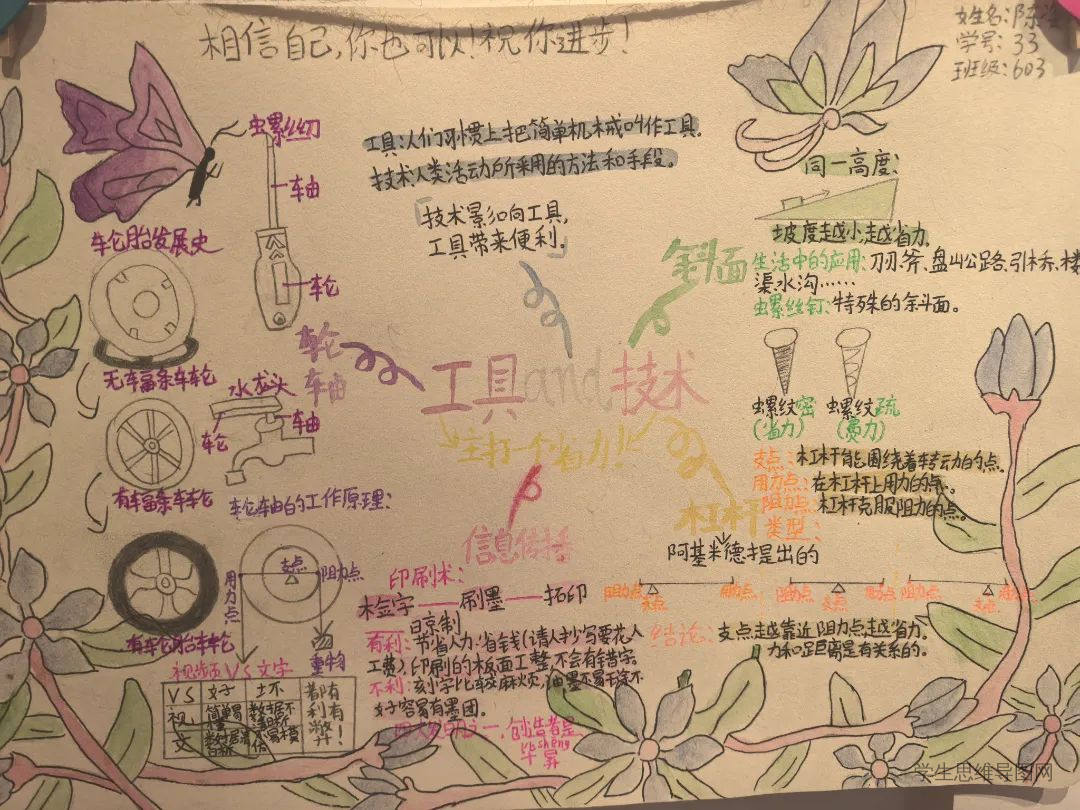 相信自己,你也可以!祝你进步!
姓名:陈
学号:33
班级:603
工具:人们习惯上把简单机械叫作工具。
技术:人类活动所采用的方法和手段。
「技术影响向工具,
工具带来便利。」
虫螺丝刀
车由
轮
车轮胎发展史
无车富条车轮
有车富条车轮
有车轮胎车轮
轮
车由
水龙头
车由
轮
轮车由的工作原理:
支点
阻力点
用力点
重物
工具and技术
主打一个省力!
同一高度:
坡度越小,越省力。
斜面
生活中的应用:刀刃、斧、盘山公路、引桥、楼
渠水沟……
虫螺丝钉:特殊的斜面。
虫螺纹密
(省力)
虫螺纹疏
(费力)
杠杆
支点:杠杆能围绕着转动的点。
用力点:在杠杆上用力的点。
阻力点:杠杆克服阻力的点。
类型:
阿基米德提出的
阻力点 支点 用力点
阻力点 支点 用力点
阻力点 支点 用力点
结论:支点越靠近阻力点,越省力。
力和距离是有关系的。
信息传播
印刷术:
刷墨——拓印
有利:节省人力,省钱(请人抄写要花人
工费),印刷的板面工整,不会有错字。
不利:刻小字比较麻烦,油墨不易干,涂不
好容易有墨团。
四大发明之一,创造者是
bì shēng
毕昇
视频VS文字
VS 好 坏 都有利有弊!
视 简单易
文
学生思维导图网